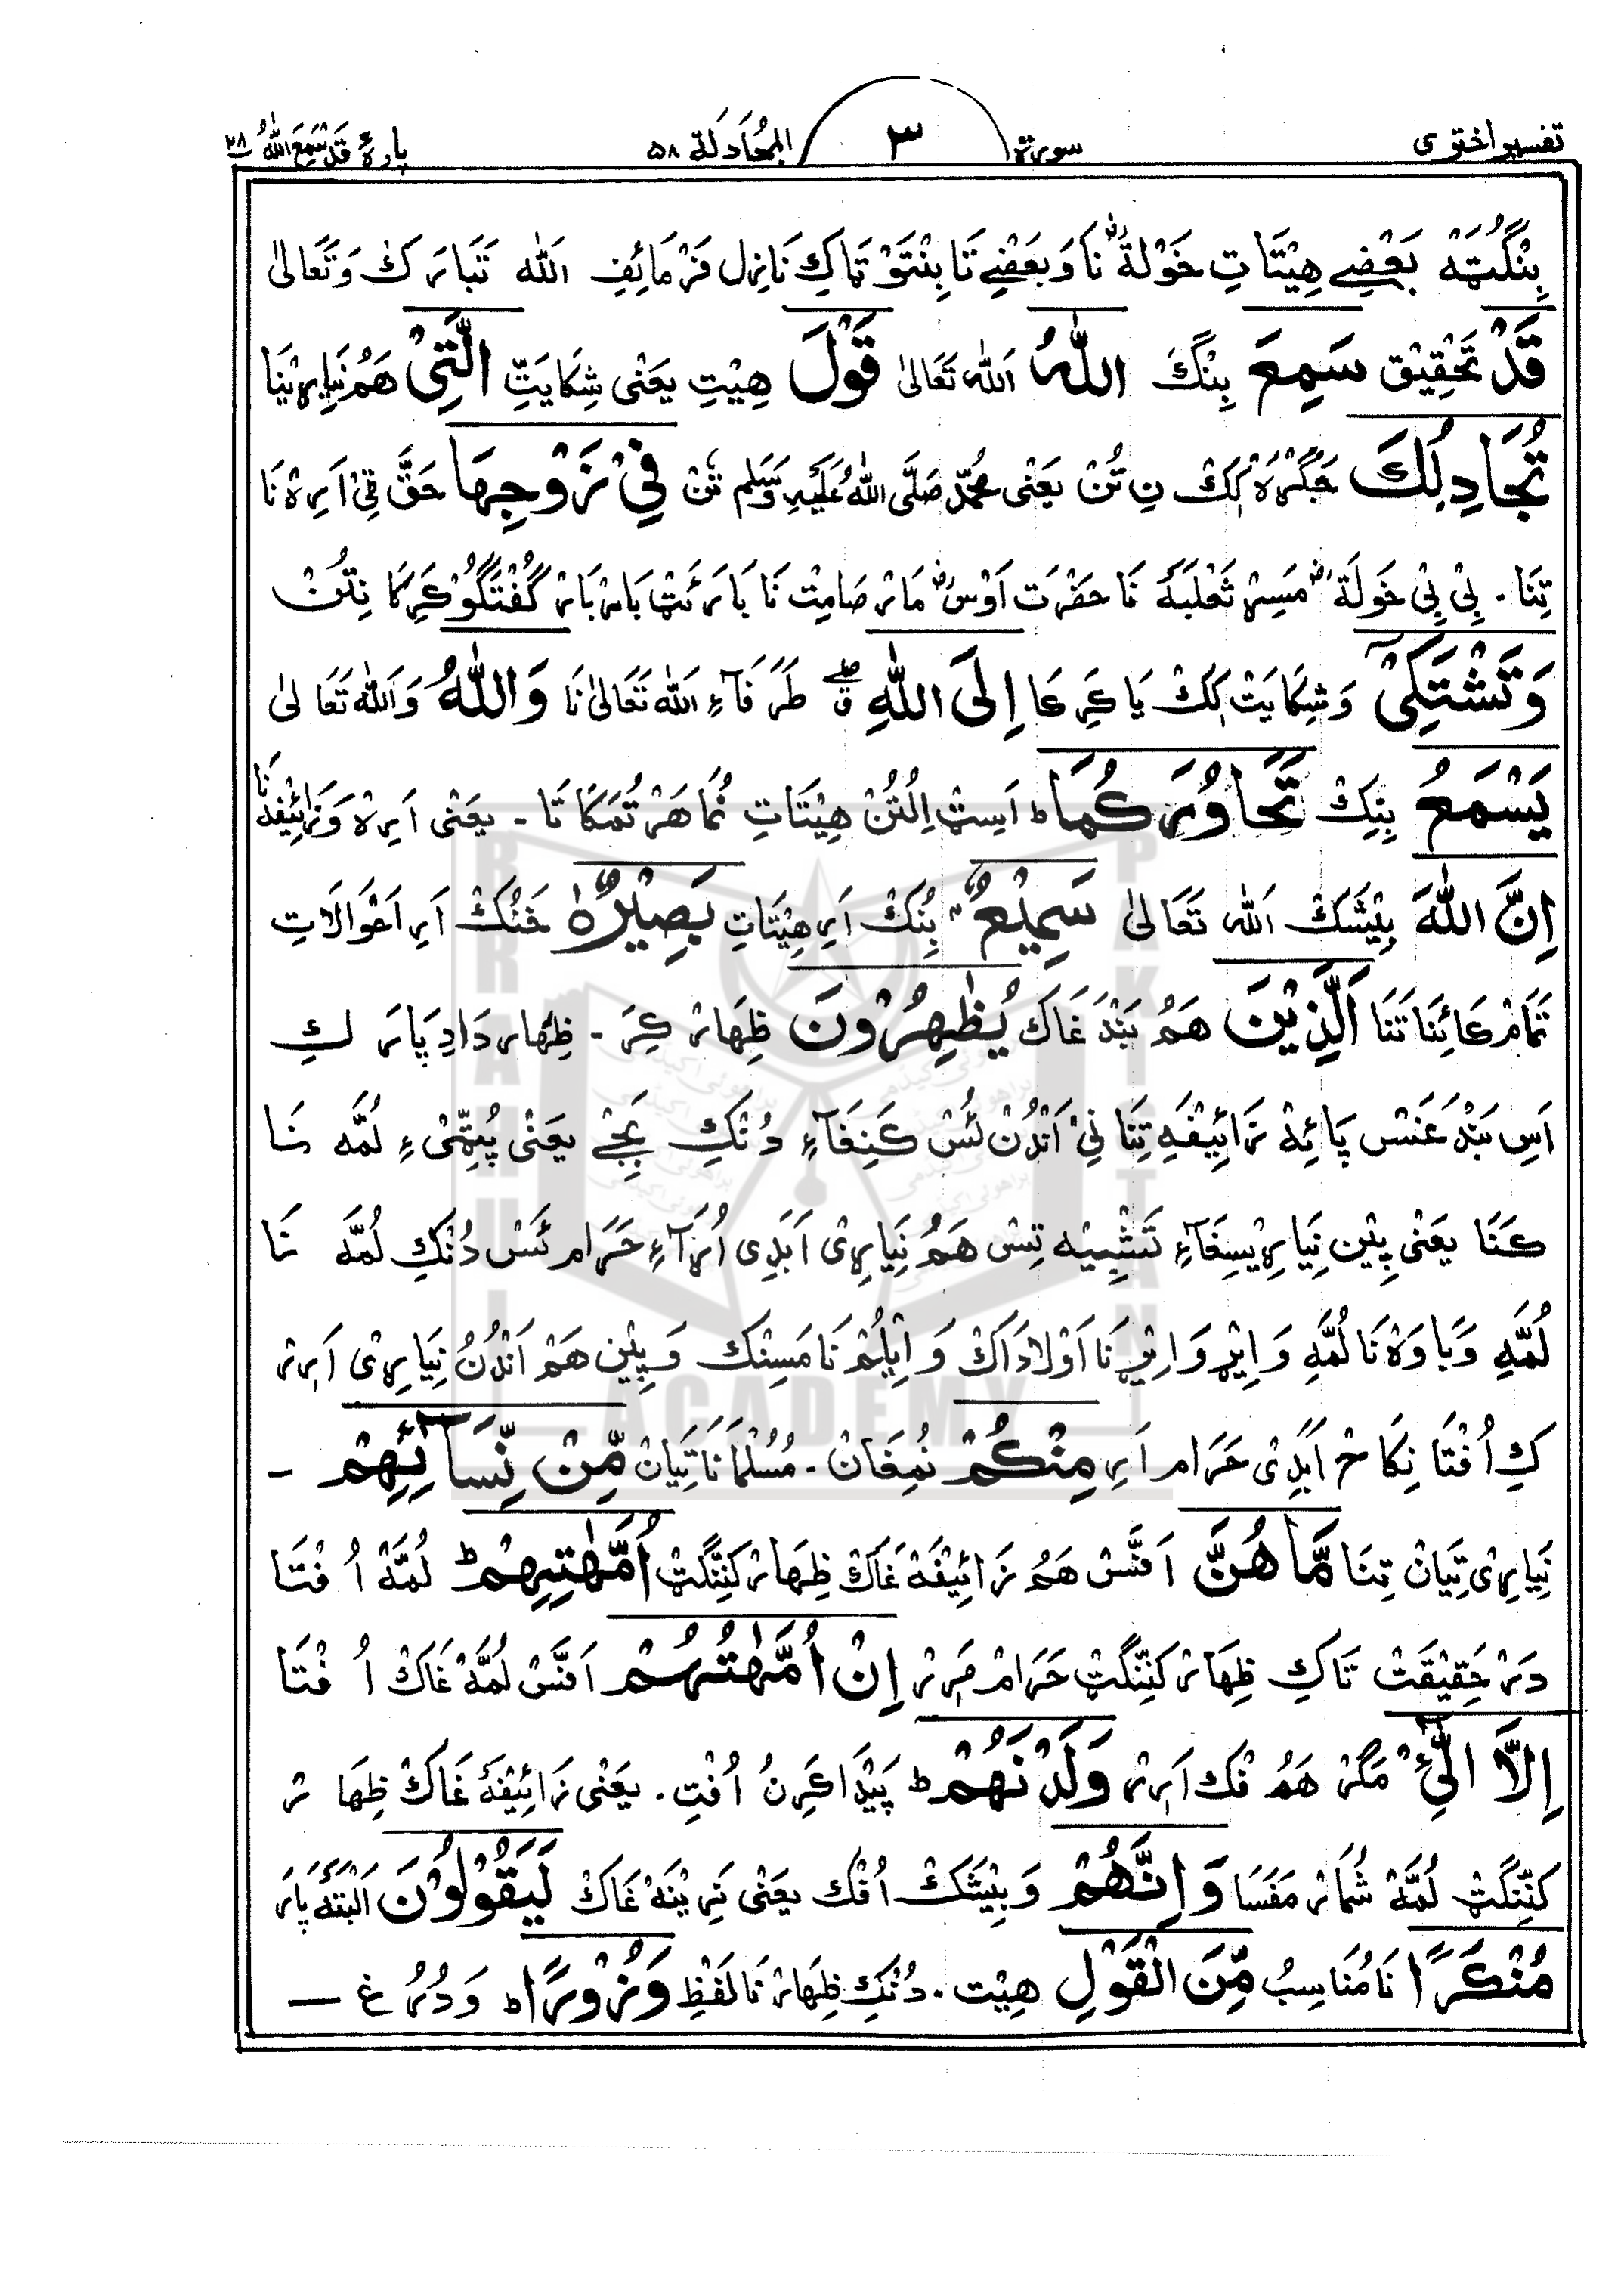 تفسیر اختری سورة ٣ المجادلة ٥٨ پارهٔ قَدْ سَمِعَ اللّٰهُ ٢٨
بِنْگُتَہ بَعْضِے هِیْتَاتِ خَوْلَةؓ نَا وَبَعْضِے تَا بِنْتَوْ تَاکِ نَازِل فَرْمَائِفِ اَللّٰه تَبَارَکَ وَتَعَالیٰ
قَدْ تَحْقِیْق سَمِعَ بِنْگَ اللّٰهُ اَللّٰه تَعَالیٰ قَوْلَ هِیْتِ یَعْنی شِکَایَتِ الَّتِیْ هَمُ نِیَاڑِیْنَا
تُجَادِلُكَ جَگْڑَہ کِکْ نِ تُنْ یَعْنی مُحَمَّد صَلَّی اللّٰهُ عَلَیْهِ وَسَلَّم تُنْ فِیْ زَوْجِهَا حَقَّ ٹِیْ اَرِہْ نَا
تِنَا. بِیْ بِیْ خَوْلَةؓ مَسِڑْ ثَعْلَبَهْ نَا حَضْرَت اَوْسؓ مَارْ صَامِتْ نَا بَارَئَٹْ بَارْبَارْ گُفْتَگُوْ کَرِکَا نِتُنْ
وَتَشْتَكِیْۤ وَشِکَایَتْ کِکْ یَا کَرِکَا اِلَی اللّٰهِ ۖۗ طَرَفَآءِ اَللّٰه تَعَالیٰ نَا وَاللّٰهُ وَاَللّٰه تَعَالیٰ
یَسْمَعُ بِنِكْ تَحَاوُرَكُمَا ؕ اَسِٹْ اِلُتُنْ هِیْتَاتِ نُمَا هَرْ تُمَکَا تَا - یَعْنی اَرِہْ وَزَائِیْفَهْ نَا
اِنَّ اللّٰهَ بِیْشَكْ اَللّٰه تَعَالیٰ سَمِیْعٌۢ بُنُكْ اَرِ هِیْتَاتِ بَصِیْرٌ خَنُكْ اَرِ اَحْوَالَاتِ
تَمَامْ کَائِنَاتَنَا اَلَّذِیْنَ هَمُ بَنْدَغَاكَ یُظٰهِرُوْنَ ظِهَارْ کِرَ - ظِهَار دَادِ پَارَ کِ
اَسِ بَنْدَغَسْ پَائِهْ زَائِیْفَهِ تِنَا نِیْ اَنْدُنْ ئُسْ کَنِغَآءِ دُنْکِ بَجِّے یَعْنی پُٹِّیْ ءِ لُمَّه نَا
کَنَا یَعْنی پِیْن نِیَاڑِیْسِغَآءِ تَشْبِیْه تِسْ هَمُ نِیَاڑِیْ اَبَدِی اُڑَآءِ حَرَام ئَسْ دُنْکِ لُمَّه نَا
لُمَّهِ وَبَاوَهْ نَا لُمَّهِ وَاِیْڑ وَاِیْڑ نَا اَوْلَادَاكْ وَاِیْلُمْ نَا مَسِنْك وَپِیْن هَمْ اَنْدُنُ نِیَاڑِیْ اَرِرْ
کِ اُفْتَا نِکَاحْ اَبَدِیْ حَرَام اَرِ مِنْكُمْ نُمْغَانْ - مُسُلْمَانَا تِیَانْ مِّنْ نِّسَآئِهِمْ -
نِیَاڑِیْ تِیَانْ تِنَا مَّا هُنَّ اَفَّسْ هَمُ زَائِیْفَهْ غَاكْ ظِهَارْ کَنِنْگَٹْ اُمَّهٰتِهِمْ ؕ لُمَّهْ اُفْتَا
دَرْ حَقِیْقَتْ تَاکِ ظِهَارْ کَنِنْگَٹْ حَرَامْ مَرِرْ اِنْ اُمَّهٰتُهُمْ اَفَّسْ لُمَّهْ غَاكْ اُفْتَا
اِلَّا الّٰٓئِیْ مَگَرْ هَمُ فْك اَرِرْ وَلَدْنَهُمْ ؕ پَیْدَا کَرِنُ اُفْتِ. یَعْنی زَائِیْفَهْ غَاكْ ظِهَارْ
کَنِنْگَٹْ لُمَّهْ شُمَارْ مَفَسَا وَاِنَّهُمْ وَبِیْشَكْ اُفْك یَعْنی نَرِیْنَهْ غَاكْ لَیَقُوْلُوْنَ اَلْبَتَّهْ پَارَ
مُنْكَرًا نَا مُنَاسِبُ مِّنَ الْقَوْلِ هِیْت. دُنْکِ ظِهَارْ نَا لَفْظِ وَزُوْرًا ؕ وَدُرُغ —
BRAHUI ACADEMY PAKISTAN